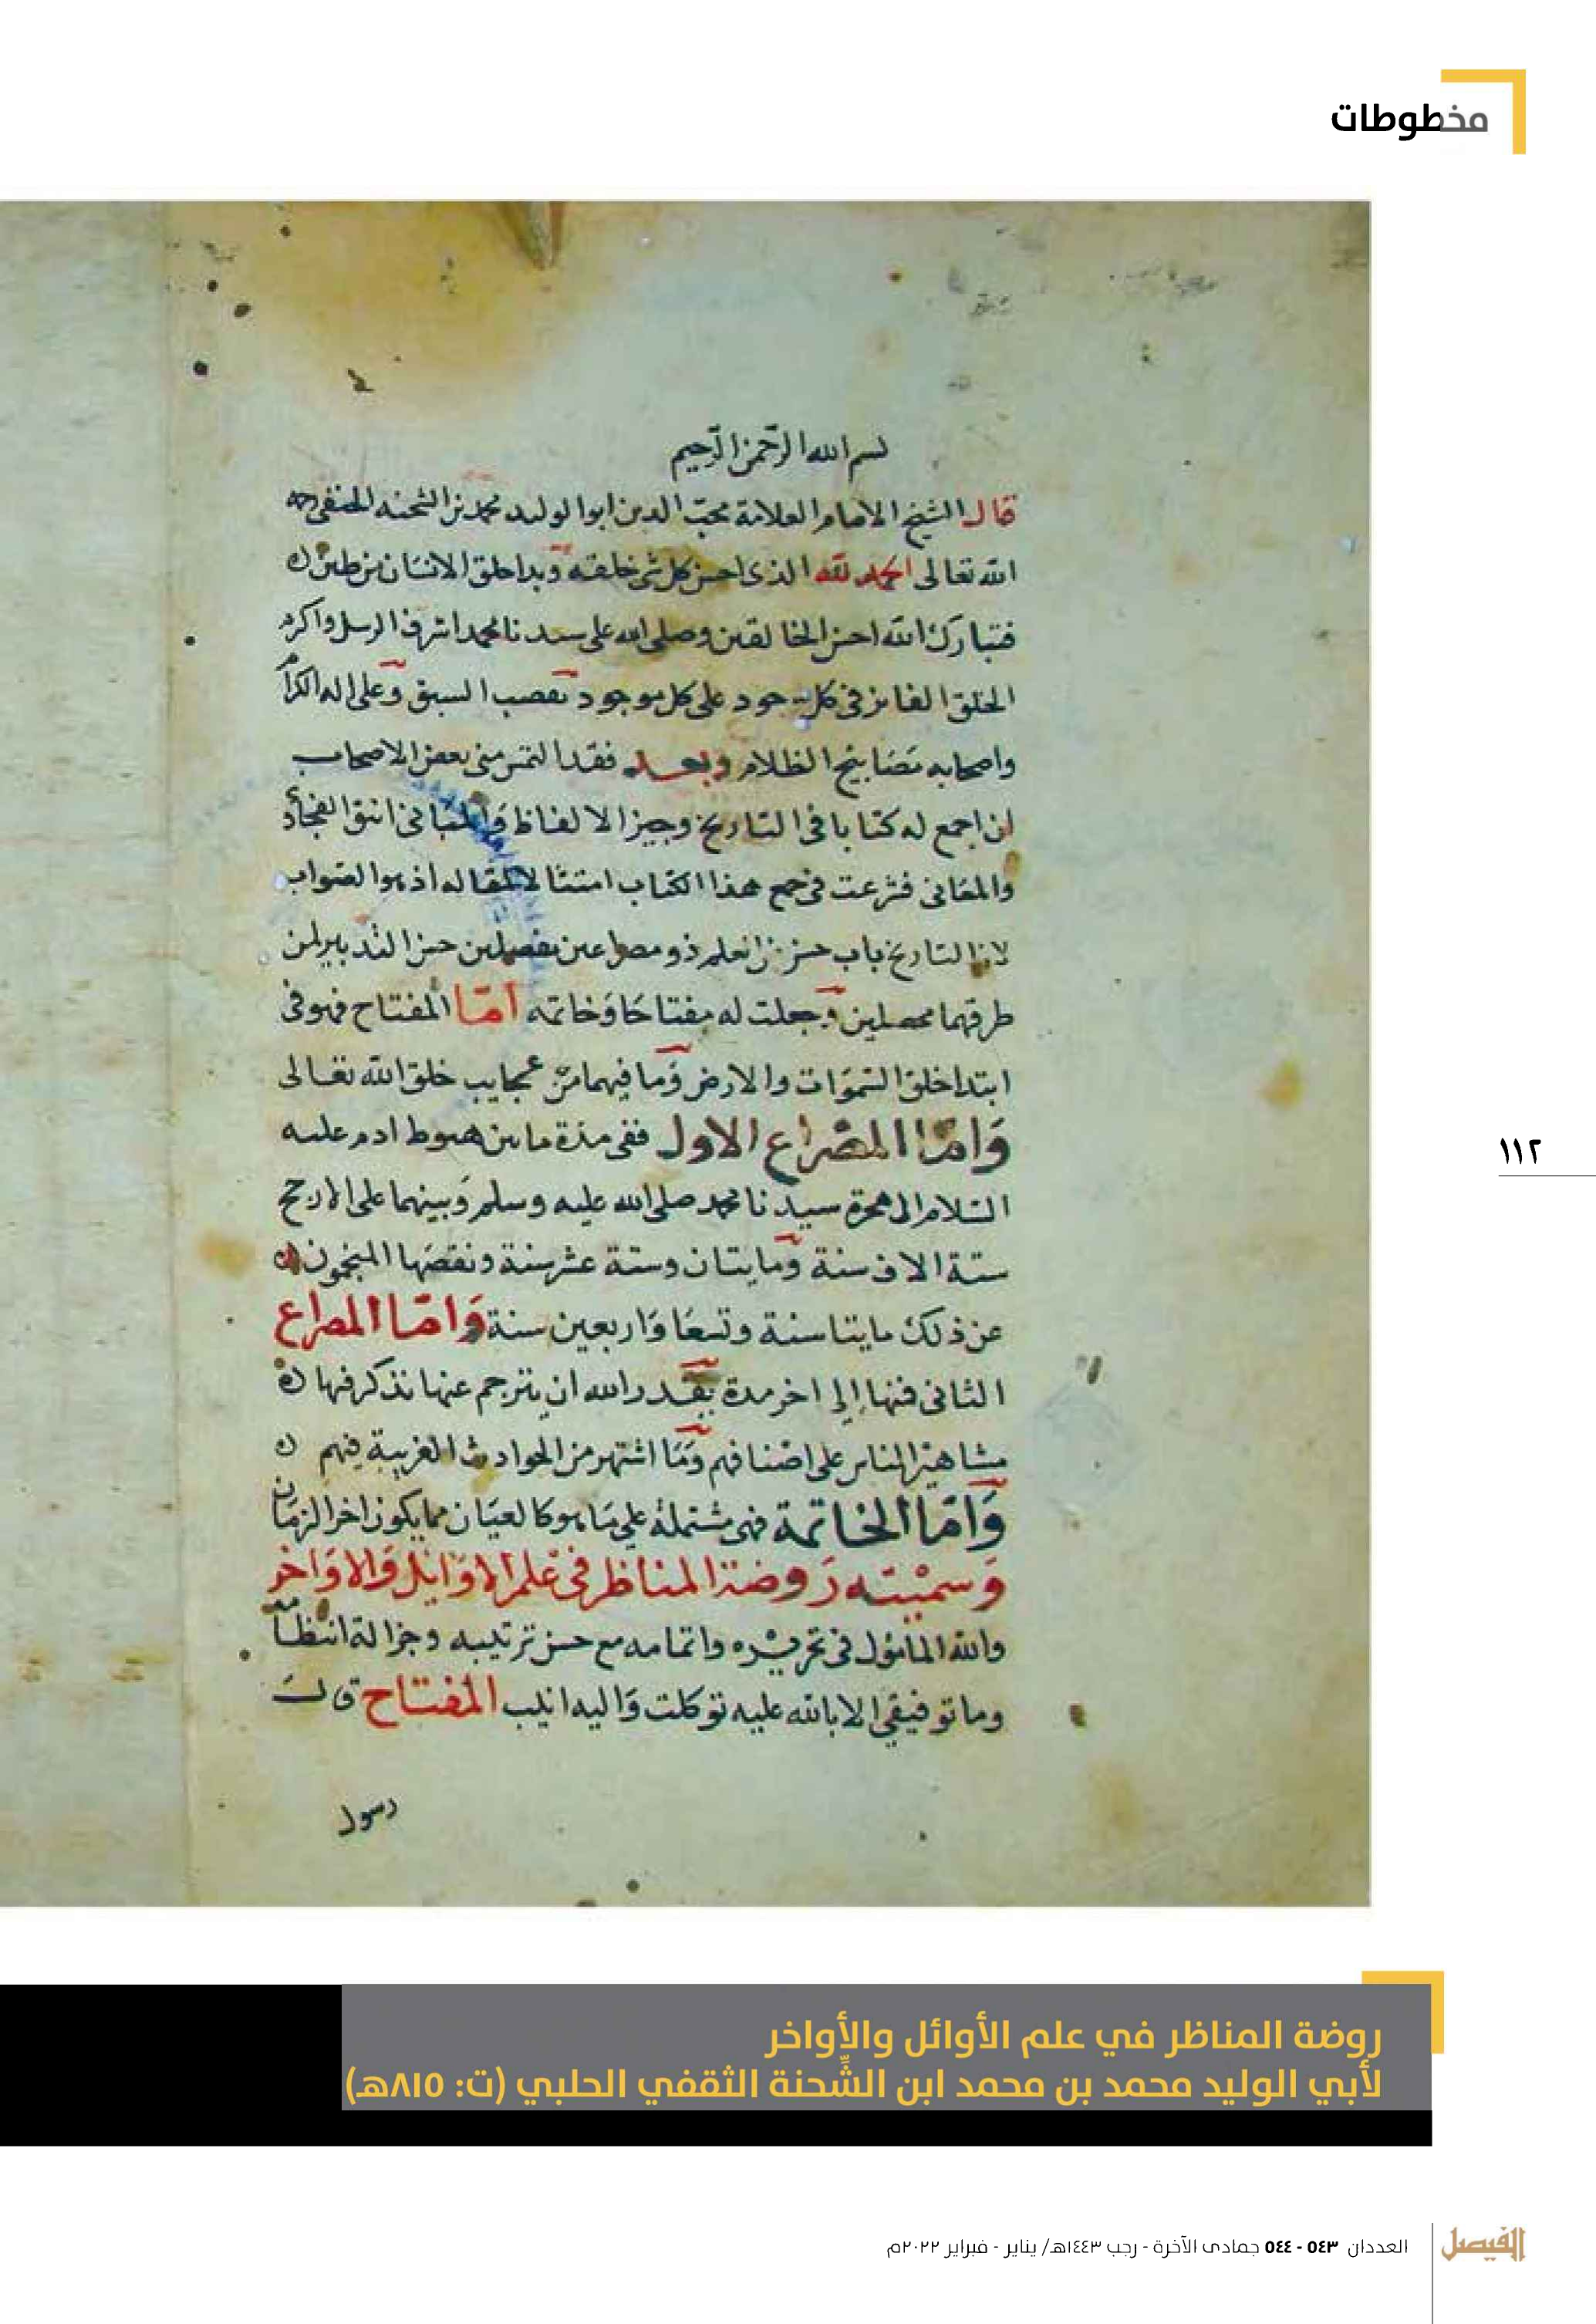 مخطوطات
بسم الله الرحمن الرحيم
قال الشيخ الامام العلامة محب الدين ابو الوليد محمد بن الشحنه الحنفي رحمه
الله تعالى الحمد لله الذي احسن كل شي خلقه وبدا خلق الانسان من طين
فتبارك الله احسن الخالقين وصلى الله على سيدنا محمد اشرف الرسل واكرم
الخلق الفايز في كل جود على كل موجود بقصب السبق وعلى اله الكرام
واصحابه مصابيح الظلام وبعد فقد التمس مني بعض الاصحاب
ان اجمع له كتابا في التاريخ وجيز الالفاظ
والمعاني فشرعت في جمع هذا الكتاب امتثالا لمقاله اذ هو الصواب
لان التاريخ باب حسن من العلم ذو مصراعين حسن التدبير لمن
طرقهما محصلين وجعلت له مفتاحا وخاتمه اما المفتاح فهو في
ابتدا خلق السموات والارض وما فيهما من عجايب خلق الله تعالى
واما المصراع الاول ففي مدة ما بين هبوط ادم عليه
السلام الى هجرة سيدنا محمد صلى الله عليه وسلم وبينهما على الارجح
ستة الاف سنة ومايتان وستة عشر سنة ونقصها المنجمون
عن ذلك مايتا سنة وتسعا واربعين سنة واما المصراع
الثاني فمنها إلى اخر مدة يقدر الله ان يترجم عنها نذكر فيها
مشاهير الناس على اصنافهم وما اشتهر من الحوادث الغريبة فيهم
واما الخاتمة فهي مشتملة على ما هو كالعيان مما يكون اخر الزمان
وسميته روضة المناظر في علم الاوايل والاواخر
والله المامول في تحريره واتمامه مع حسن ترتيبه وجزالة انتظامه
وما توفيقي الا بالله عليه توكلت واليه انيب المفتاح
رسول
١١٢
روضة المناظر في علم الأوائل والأواخر
لأبي الوليد محمد بن محمد ابن الشِّحنة الثقفي الحلبي (ت: ٨١٥هـ)
العددان ٥٤٣ - ٥٤٤ جمادى الآخرة - رجب ١٤٤٣هـ/ يناير - فبراير ٢٠٢٢م
الفيصل